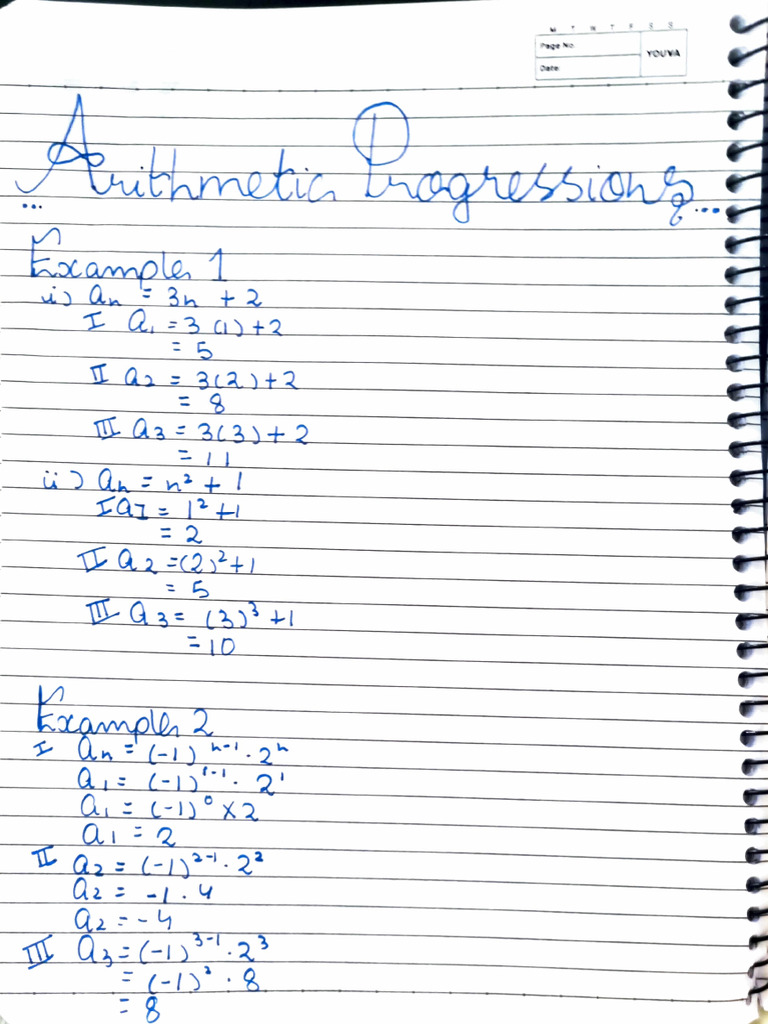 M T W T F S S
Page No.
YOUVA
Date:
Arithmetic Progressions
... ...
Example 1
i) an = 3n + 2
I a₁ = 3(1)+2
= 5
II a2 = 3(2)+2
= 8
III a3 = 3(3)+2
= 11
ii) an = n² + 1
I aI = 1² +1
= 2
II a2 =(2)²+1
= 5
III a3 = (3)³ +1
=10
Example 2
I an = (-1)ⁿ⁻¹ · 2ⁿ
a₁ = (-1)¹⁻¹ · 2¹
a₁ = (-1)⁰ × 2
a₁ = 2
II a2 = (-1)²⁻¹ · 2²
a2 = -1 · 4
a2 = -4
III a3 = (-1)³⁻¹ · 2³
= (-1)² · 8
= 8